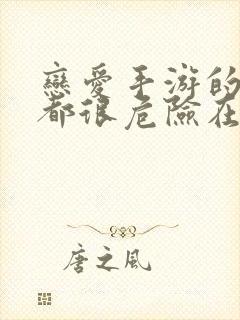 戀愛手游的
都很危險在
唐之風